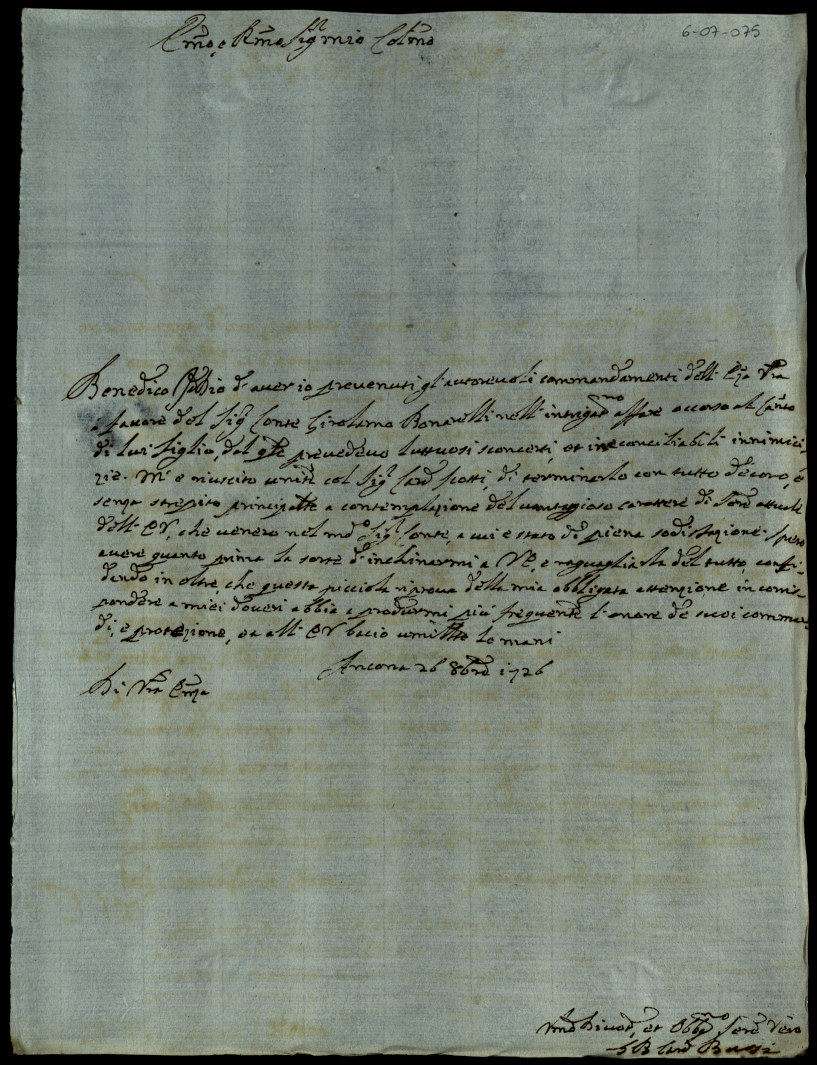 6-07-075
Emo, e Rmo Sigr mio Colmo
Benedico Iddio d'aver io prevenuti gl'autorevoli commandamenti dell'Em̃a Vr̃a
a favore del Sigr Conte Girolamo Bonarelli nell'intrigatmo affare occorso al
di lui figlio, dal qle prevedevo luttuosi sconcerti, et irreconciliabili innimici-
zie. M'è riuscito unite col Sigr Card Scotti, di terminarlo con tutto decoro, e
senza strepito principalte a contemplazione del vantagioso carattere di Sere attuale
dell'EV, che venero nel mdo Sigr Conte, a cui è stato di piena sodisfazione. Spero
avere quanto prima la sorte d'inchinarmi a VE, e raguagliarla del tutto, confi-
dando in oltre, che questa picciola riprova della mia obbligata attenzione in corris-
pondere a miei doveri abbia a produrmi più frequente l'onore de suoi comman-
di, e protezione, ea all'EV bacio umilte le mani
Ancona 26 8bre 1726
Di Vra Em̃a
Vmo Divotmo, et Obbgmo Sere Vero